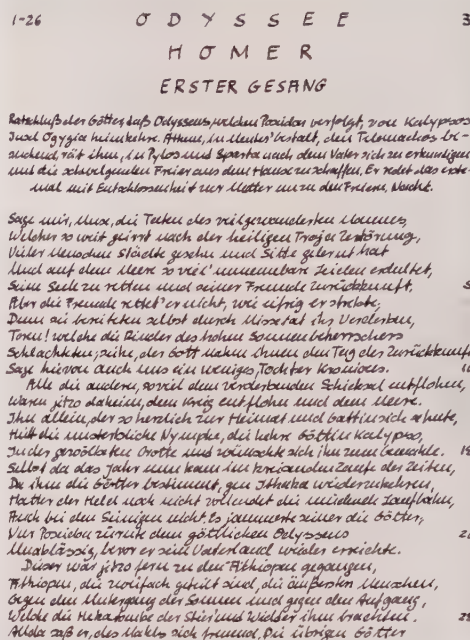 1-26 ODYSSEE 3
HOMER
ERSTER GESANG
Ratschluß der Götter, daß Odysseus, welchen Poseidon verfolgt, von Kalypsos
Insel Ogygia heimkehre. Athene, in Mentes' Gestalt, den Telemachos be-
suchend, rät ihm, in Pylos und Sparta nach dem Vater sich zu erkundigen
und die schwelgenden Freier aus dem Hause zu schaffen. Er redet das erste-
mal mit Entschlossenheit zur Mutter und zu den Freiern. Nacht.
Sage mir, Muse, die Taten des vielgewanderten Mannes,
Welcher so weit geirrt nach der heiligen Troja Zerstörung,
Vieler Menschen Städte gesehn und Sitte gelernt hat
Und auf dem Meere so viel' unnennbare Leiden erduldet,
Seine Seele zu retten und seiner Freunde Zurückkunft. 5
Aber die Freunde rettet' er nicht, wie eifrig er strebte;
Denn sie bereiteten selbst durch Missetat ihr Verderben,
Toren! welche die Rinder des hohen Sonnenbeherrschers
Schlachteten; siehe, der Gott nahm ihnen den Tag der Zurückkunft.
Sage hievon auch uns ein weniges, Tochter Kronions. 10
Alle die andern, so viel dem verderbenden Schicksal entflohen,
Waren jetzo daheim, dem Krieg entflohn und dem Meere.
Ihn allein, der so herzlich zur Heimat und Gattin sich sehnte,
Hielt die unsterbliche Nymphe, die hehre Göttin Kalypso,
In der gewölbeten Grotte und wünschte sich ihn zum Gemahle. 15
Selbst da das Jahr nun kam im kreisenden Laufe der Zeiten,
Da ihm die Götter bestimmt, gen Ithaka wiederzukehren,
Hatte der Held noch nicht vollendet die müdende Laufbahn,
Auch bei den Seinigen nicht. Es jammerte seiner die Götter;
Nur Poseidon zürnte dem göttlichen Odysseus 20
Unablässig, bevor er sein Vaterland wieder erreichte.
Dieser war jetzo fern zu den Äthiopen gegangen,
Äthiopen, die zwiefach geteilt sind, die äußersten Menschen,
Gegen den Untergang der Sonnen und gegen den Aufgang,
Welche die Hekatombe der Stier' und Widder ihm brachten. 25
Allda saß er, des Mahls sich freuend. Die übrigen Götter